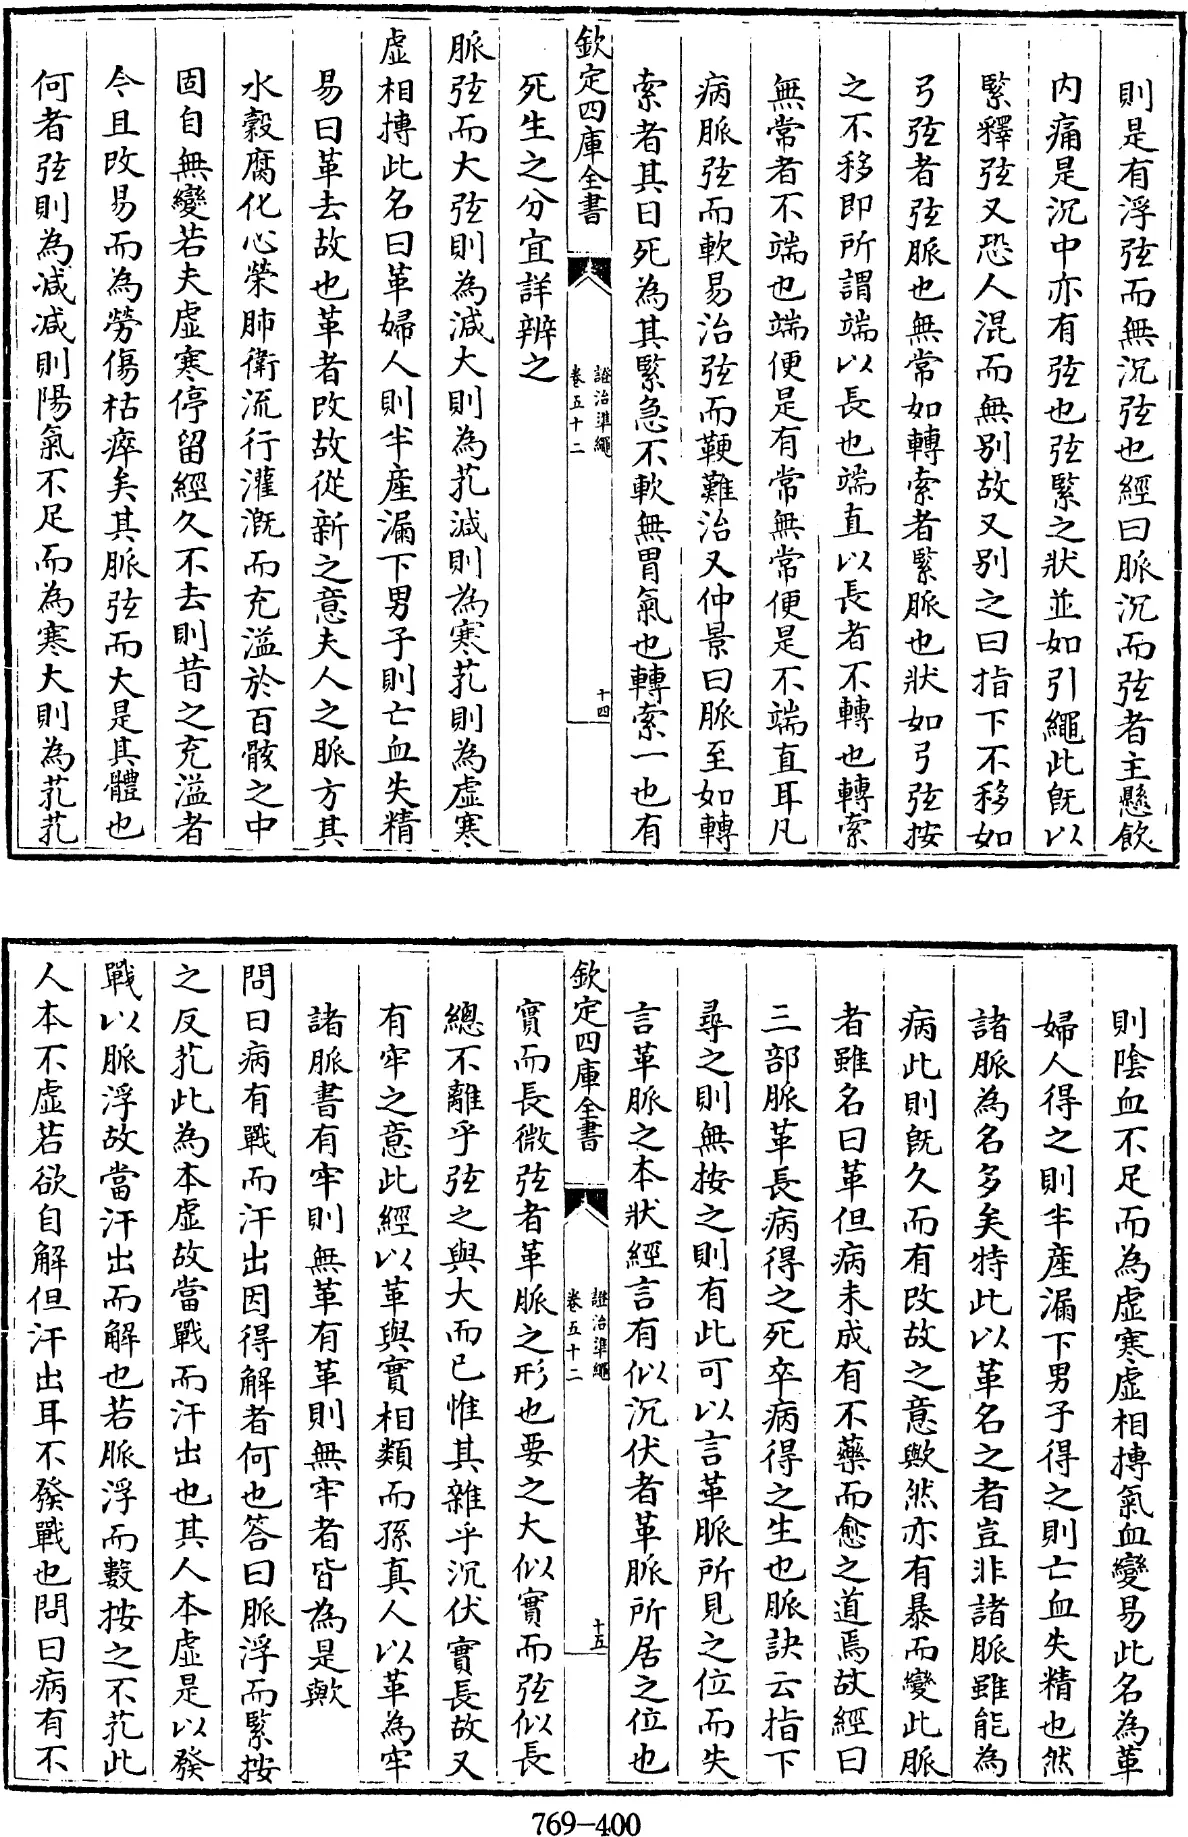 則是有浮弦而無沉弦也經曰脈沉而弦者主懸飲
内痛是沉中亦有弦也弦緊之狀並如引繩此旣以
緊釋弦又恐人混而無别故又别之曰指下不移如
弓弦者弦脈也無常如轉索者緊脈也狀如弓弦按
之不移即所謂端以長也端直以長者不轉也轉索
無常者不端也端便是有常無常便是不端直耳凡
病脈弦而軟易治弦而鞕難治又仲景曰脈至如轉
索者其日死為其緊急不軟無胃氣也轉索一也有
欽定四庫全書
證治準繩
卷五十二
十四
死生之分宜詳辨之
脈弦而大弦則為減大則為芤減則為寒芤則為虛寒
虛相摶此名曰革婦人則半產漏下男子則亡血失精
易曰革去故也革者改故從新之意夫人之脈方其
水穀腐化心榮肺衛流行灌溉而充溢於百骸之中
固自無變若夫虛寒停留經久不去則昔之充溢者
今且改易而為勞傷枯瘁矣其脈弦而大是其體也
何者弦則為減減則陽氣不足而為寒大則為芤芤
則陰血不足而為虛寒虛相摶氣血變易此名為革
婦人得之則半產漏下男子得之則亡血失精也然
諸脈為名多矣特此以革名之者豈非諸脈雖能為
病此則旣久而有改故之意歟然亦有暴而變此脈
者雖名曰革但病未成有不藥而愈之道焉故經曰
三部脈革長病得之死卒病得之生也脈訣云指下
尋之則無按之則有此可以言革脈所見之位而失
言革脈之本狀經言有似沉伏者革脈所居之位也
欽定四庫全書
證治準繩
卷五十二
十五
實而長微弦者革脈之形也要之大似實而弦似長
總不離乎弦之與大而已惟其雜乎沉伏實長故又
有牢之意此經以革與實相類而孫真人以革為牢
諸脈書有牢則無革有革則無牢者皆為是歟
問曰病有戰而汗出因得解者何也答曰脈浮而緊按
之反芤此為本虛故當戰而汗出也其人本虛是以發
戰以脈浮故當汗出而解也若脈浮而數按之不芤此
人本不虛若欲自解但汗出耳不發戰也問曰病有不
769-400